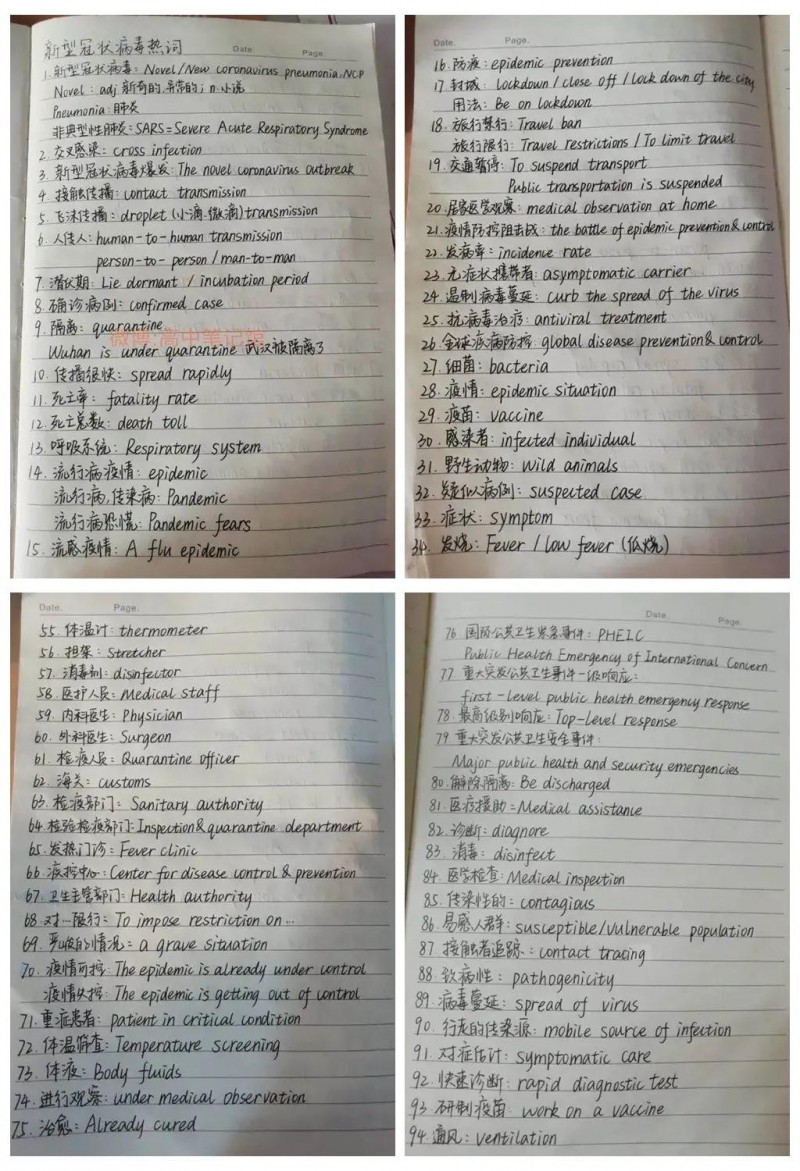 新型冠状病毒热词
Date. Page.
1.新型冠状病毒: Novel/New coronavirus pneumonia.NCP
Novel: adj.新奇的,异常的; n.小说
Pneumonia:肺炎
非典型性肺炎: SARS=Severe Acute Respiratory Syndrome
2. 交叉感染: cross infection
3. 新型冠状病毒爆发: The novel coronavirus outbreak
4. 接触传播: contact transmission
5. 飞沫传播: droplet (小滴.微滴)transmission
6. 人传人: human-to-human transmission
person-to-person / man-to-man
7. 潜伏期: Lie dormant / incubation period
8. 确诊病例: confirmed case
9. 隔离: quarantine
微博:高中笔记
Wuhan is under quarantine 武汉被隔离了
10. 传播很快: spread rapidly
11. 死亡率: fatality rate
12. 死亡总数: death toll
13. 呼吸系统: Respiratory system
14. 流行病疫情: epidemic
流行病,传染病: Pandemic
流行病恐慌: Pandemic fears
15. 流感疫情: A flu epidemic
Date. Page.
16. 防疫: epidemic prevention
17. 封城: lockdown / close off / lock down of the city
用法: Be on lockdown
18. 旅行禁行: Travel ban
旅行限行: Travel restrictions / To limit travel
19. 交通暂停: To suspend transport
Public transportation is suspended
20. 居家医学观察: medical observation at home
21. 疫情防控阻击战: the battle of epidemic prevention & control
22. 发病率: incidence rate
23. 无症状携带者: asymptomatic carrier
24. 遏制病毒蔓延: curb the spread of the virus
25. 抗病毒治疗: antiviral treatment
26. 全球疾病防控: global disease prevention & control
27. 细菌: bacteria
28. 疫情: epidemic situation
29. 疫苗: vaccine
30. 感染者: infected individual
31. 野生动物: Wild animals
32. 疑似病例: suspected case
33. 症状: symptom
34. 发烧: Fever / low fever (低烧)
Date. Page.
55. 体温计: thermometer
56. 担架: Stretcher
57. 消毒剂: disinfector
58. 医护人员: Medical staff
59. 内科医生: Physician
60. 外科医生: Surgeon
61. 检疫人员: Quarantine officer
62. 海关: customs
63. 检疫部门: Sanitary authority
64. 检验检疫部门: Inspection & quarantine department
65. 发热门诊: Fever clinic
66. 疾控中心: Center for disease control & prevention
67. 卫生主管部门: Health authority
68. 对…限行: To impose restriction on…
69. 严峻的情况: a grave situation
70. 疫情可控: The epidemic is already under control
疫情失控: The epidemic is getting out of control
71. 重症患者: patient in critical condition
72. 体温筛查: Temperature screening
73. 体液: Body fluids
74. 进行观察: under medical observation
75. 治愈: Already cured
Date. Page.
76. 国际公共卫生紧急事件: PHEIC
Public Health Emergency of International Concern
77. 重大突发公共卫生事件一级响应:
first-level public health emergency response
78. 最高级别响应: Top-level response
79 重大突发公共卫生安全事件:
Major public health and security emergencies
80. 解除隔离: Be discharged
81. 医疗援助: Medical assistance
82. 诊断: diagnore
83. 消毒: disinfect
84. 医学检查: Medical inspection
85. 传染性的: contagious
86. 易感人群: susceptible/vulnerable population
87 接触者追踪: contact tracing
88. 致病性: pathogenicity
89. 病毒蔓延: spread of virus
90. 行走的传染源: mobile source of infection
91. 对症估计: symptomatic care
92. 快速诊断: rapid diagnostic test
93 研制疫苗 work on a vaccine
94. 通风: ventilation